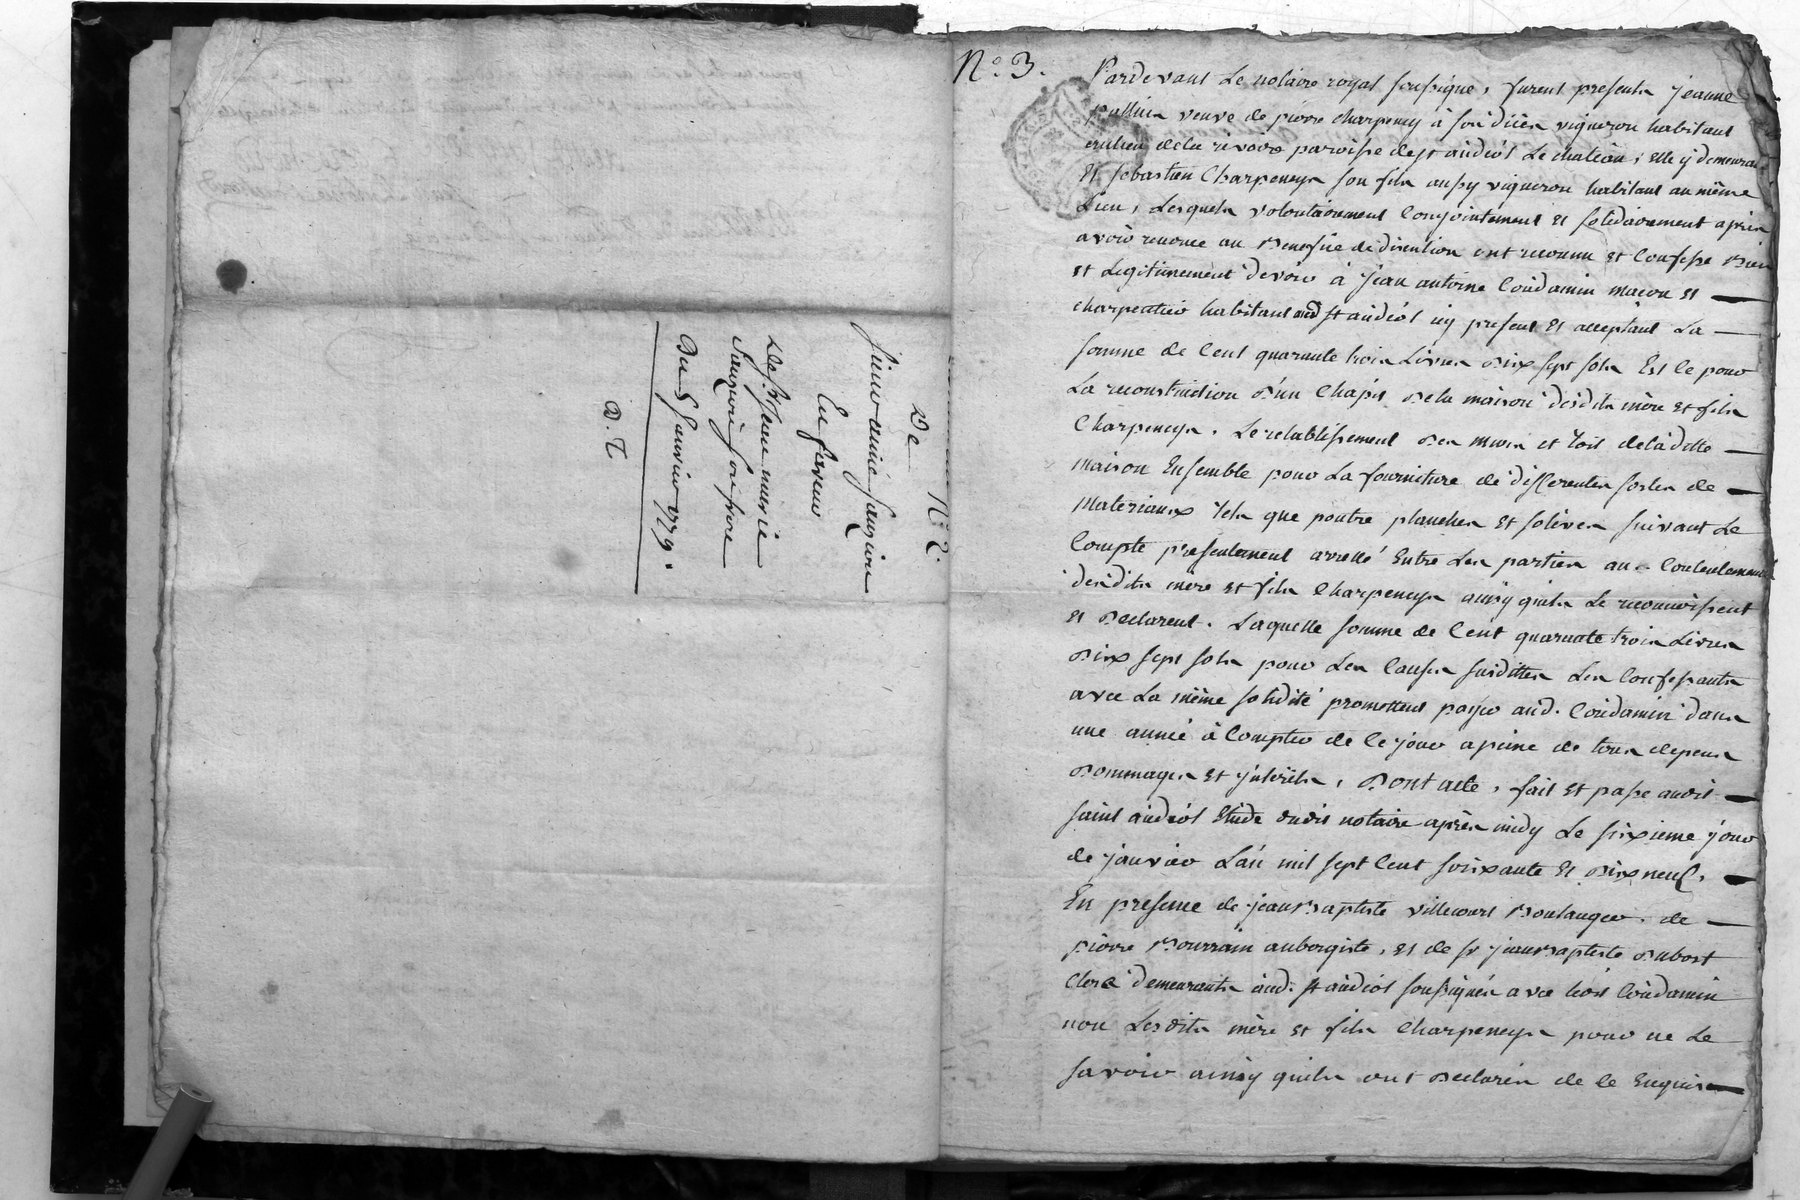 N° 2.
De
jeune ainé Sauzion
En faveur
De Sr. Jean marie
Sauzion son frere
Du 5 janvier 1779.
D. T
N° 3.
Pardevant Le notaire royal soussigné, furent presents jeanne
veuve de pierre charpeney a son viven vigneron habitant
au lieu de la rivoire paroisse de st andéol Le chateau, elle y demeurant
Et sebastien Charpeneys son fils aussy vigneron habitant au même
Lieu, Lesquels volontairement Conjointement et solidairement après
avoir renoncé au Benefice de division ont reconnu et Confessé Bien
et Legitimement devoir à Jean antoine Condamin maçon et
charpentier habitant aud st andéol icy present et acceptant La
somme de Cent quarante trois Livres Dix sept sols Et Ce pour
La reconstruction D'un Chapit De la maison desdits mère et fils
Charpeneys. Le retablissement Des murs et toit de la ditte
maison Ensemble pour La fourniture de differentes sortes de
materiaux tels que poutre planches et solives suivant Le
Compte presentement arresté Entre Les parties au Contentement
desdits mère et fils Charpeneys ainsy quils Le reconnoissent
et Declarent. Laquelle somme de Cent quarante trois Livres
Dix sept sols pour Les Causes susdittes Les Confessants
avec La même solidité promettent payer aud. Condamin dans
une année à Compter de Ce jour a peine de tous depens
Dommages et jnterêts, Dont acte, fait et passé audit
saint andéol Etude dudit notaire après midy Le sixieme jour
de janvier L'an mil sept Cent soixante et Dix neuf,
En presence de jean Baptiste villecourt Boulanger, de
pierre Bourrain aubergiste, et de sr jean Baptiste Dubost
Clerc demeurants aud. st andéol soussignés avec ledit Condamin
non Lesdits mère et fils Charpeneys pour ne Le
savoir ainsy quils ont Declarés de Ce Enquis